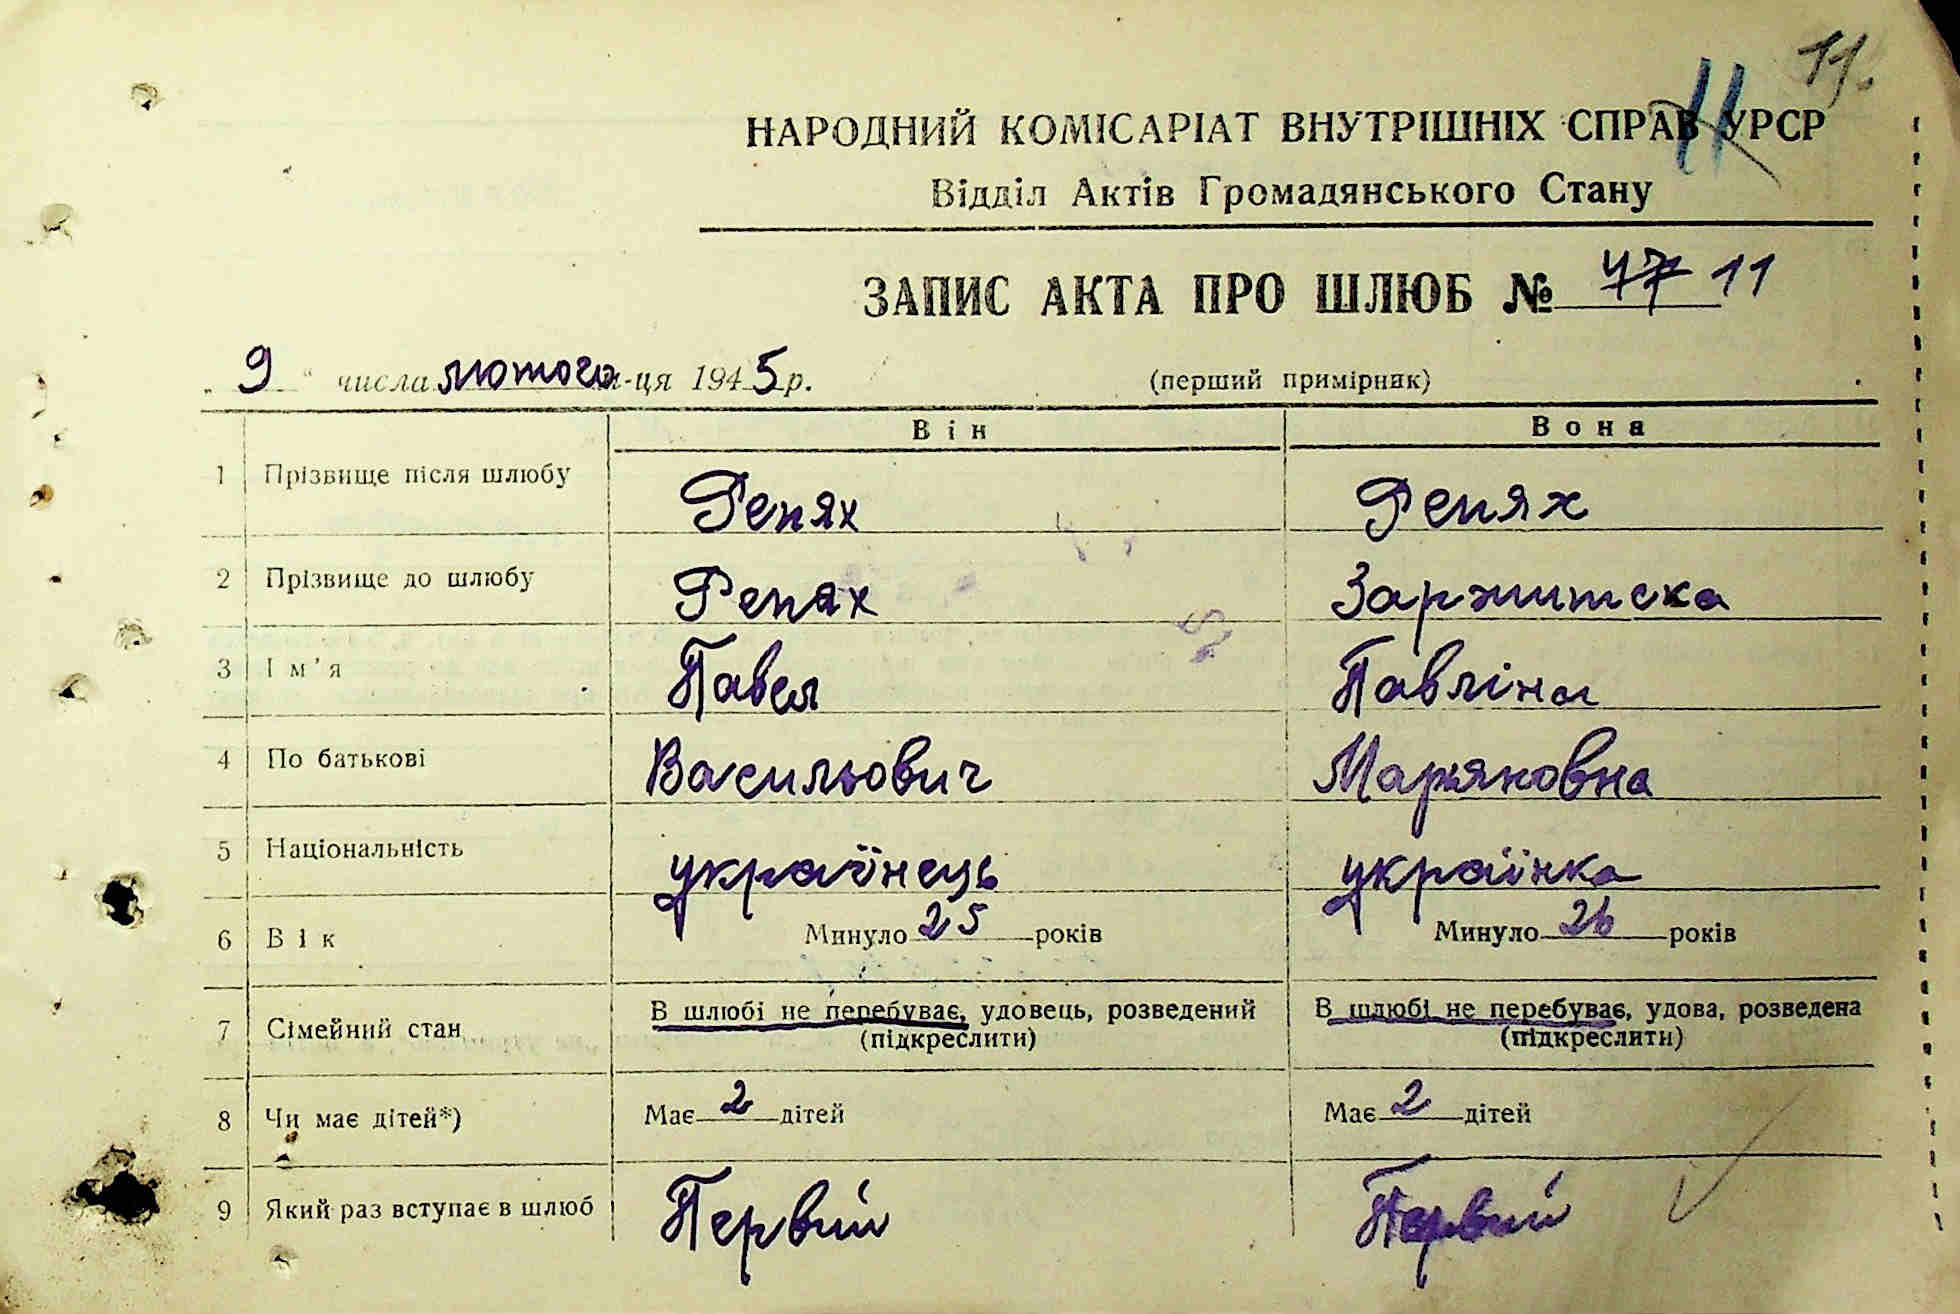 11.
11
НАРОДНИЙ КОМІСАРІАТ ВНУТРІШНІХ СПРАВ УРСР
Відділ Актів Громадянського Стану
ЗАПИС АКТА ПРО ШЛЮБ № 47 11
„ 9 “ числа лютого м-ця 1945 р. (перший примірник)
Він Вона
1 Прізвище після шлюбу Репях Репях
2 Прізвище до шлюбу Репях Заржитска
3 Ім'я Павел Павліна
4 По батькові Васильович Марʼяновна
5 Національність українець українка
6 Вік Минуло 25 років Минуло 26 років
7 Сімейний стан В шлюбі не перебуває, удовець, розведений В шлюбі не перебуває, удова, розведена
(підкреслити) (підкреслити)
8 Чи має дітей*) Має 2 дітей Має 2 дітей
9 Який раз вступає в шлюб Первий Первий